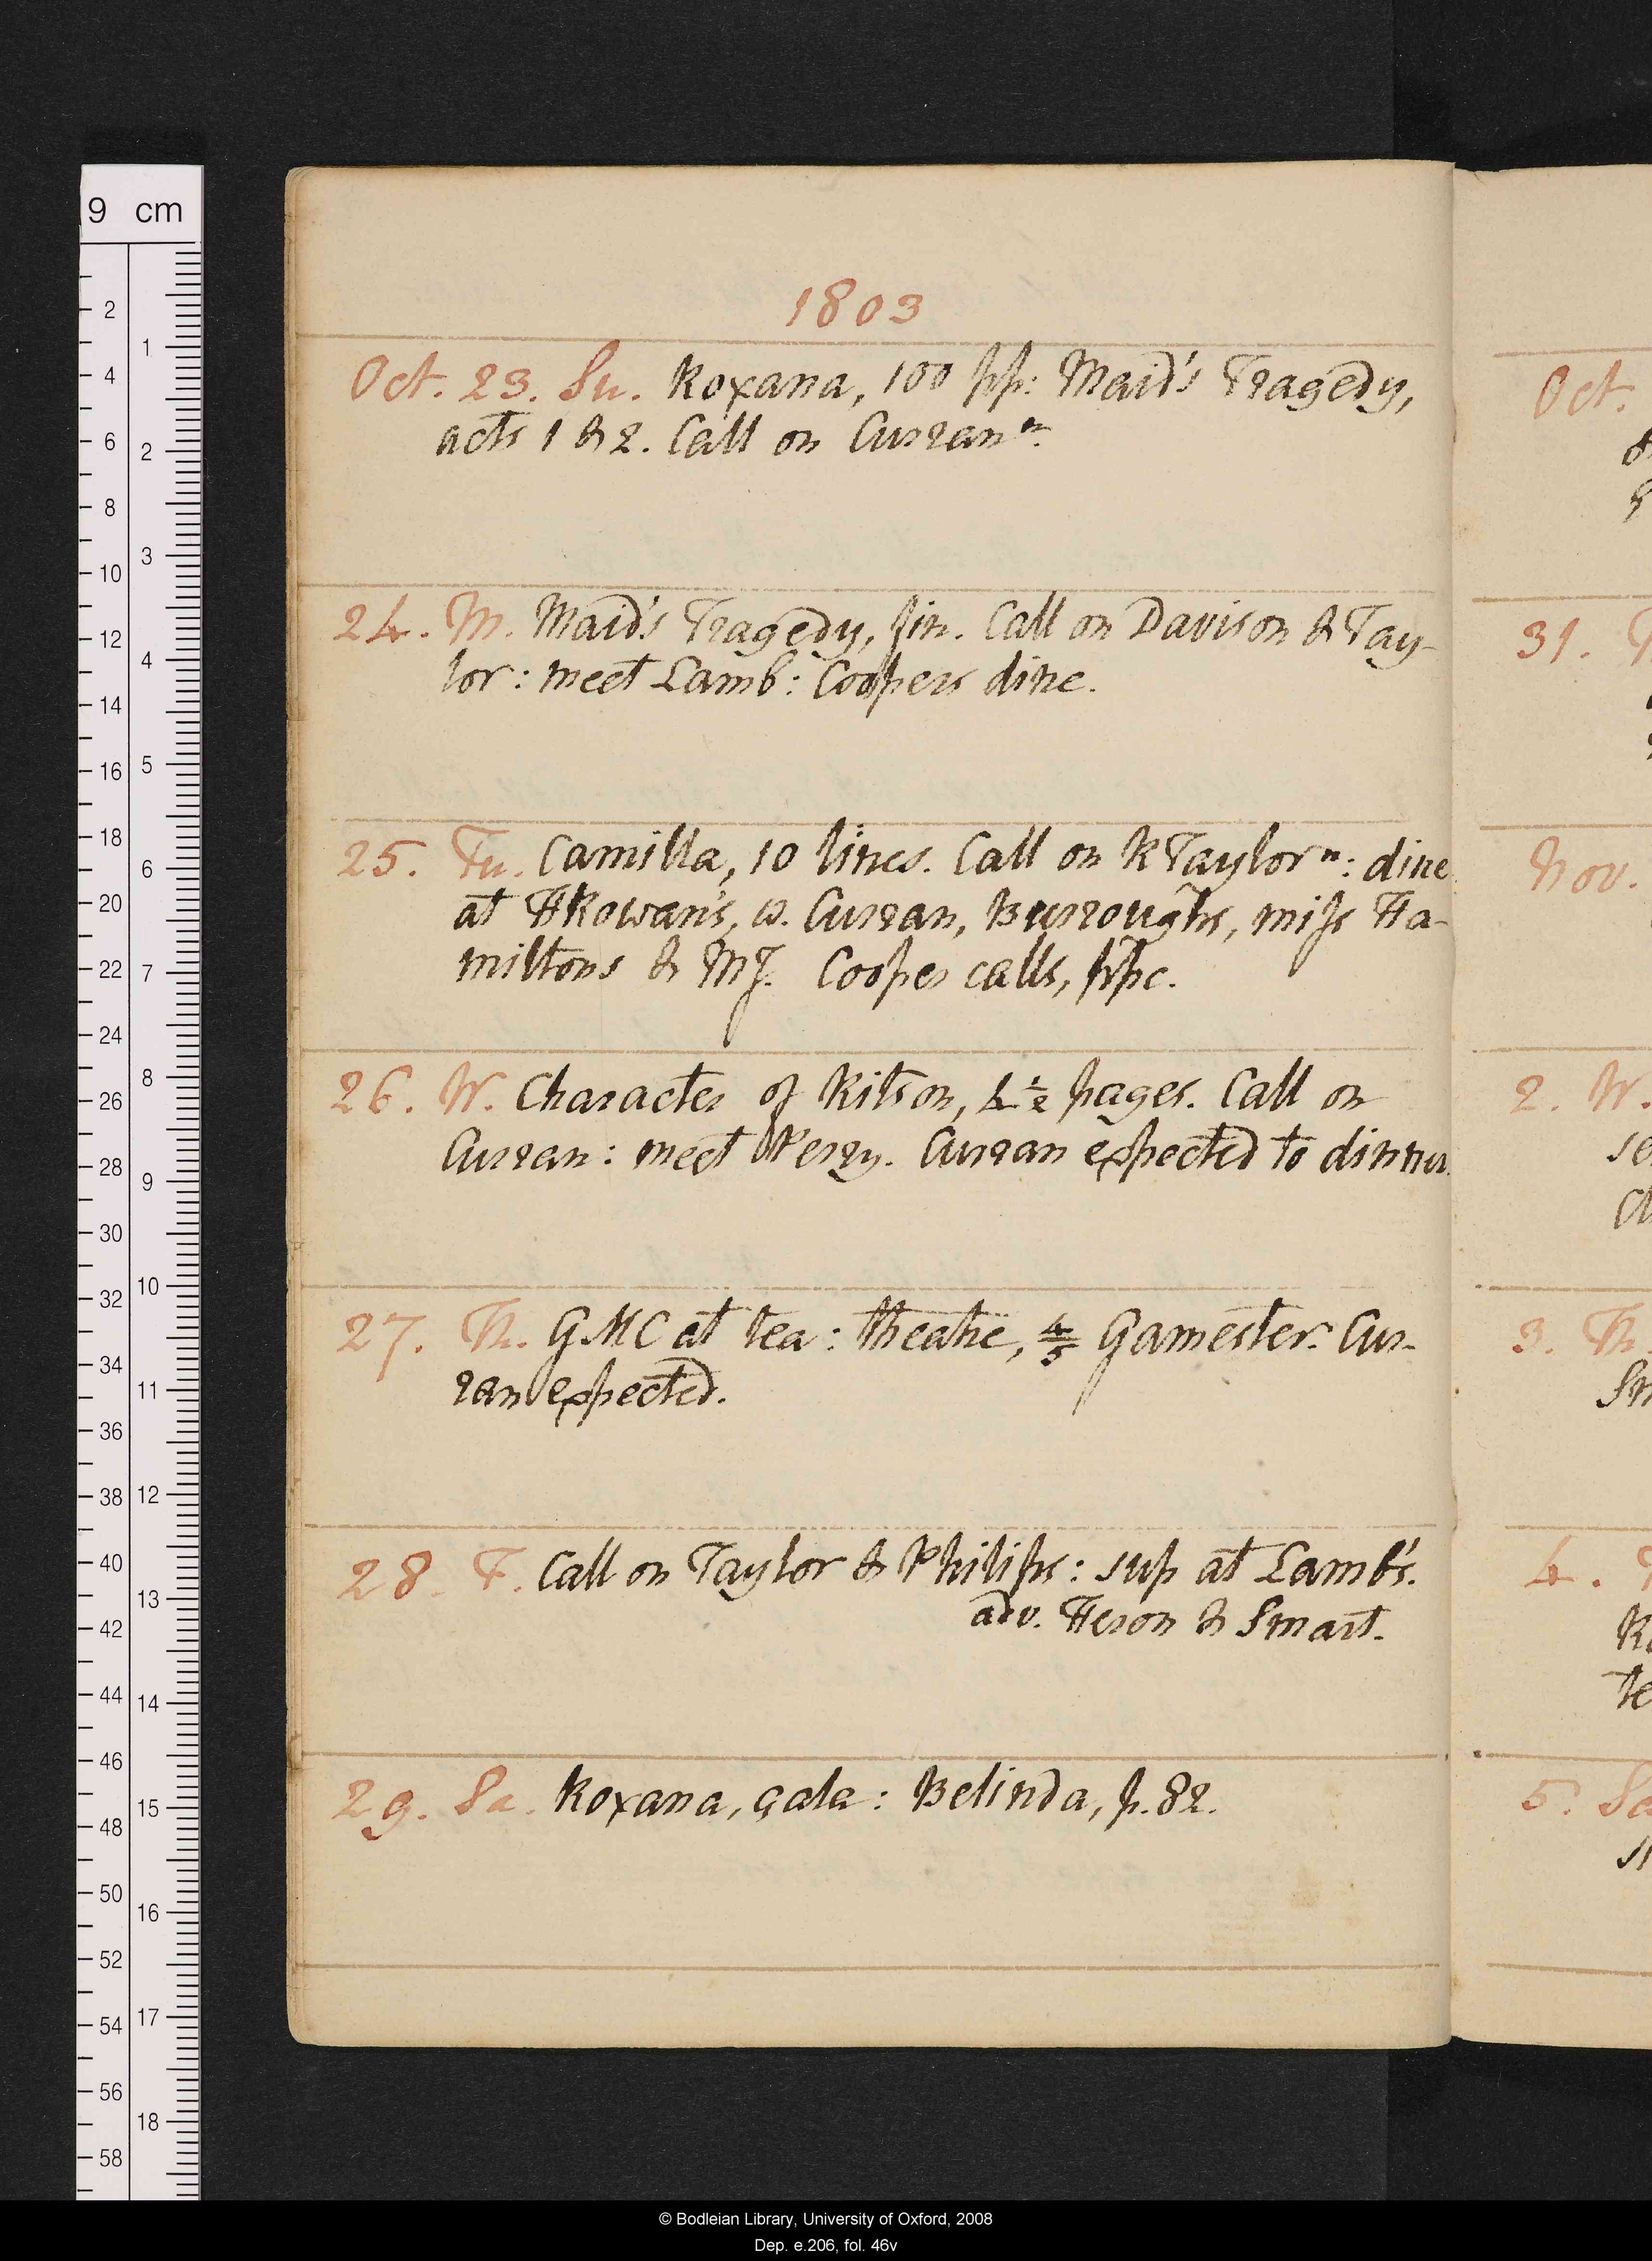 9 cm
1803
Oct. 23. Su. Roxana, 100 pp: Maid's Tragedy,
acts 1 & 2. Call on Curran n.
24. M. Maid's Tragedy, fin. Call on Davison & Tay-
lor: meet Lamb: Coopers dine.
25. Tu. Camilla, 10 lines. Call on RTaylor n: dine
at HRowan's, w. Curran, Burroughs, miss Ha-
miltons & MJ. Cooper calls, ppc.
26. W. Character of Ritson, 4 1/2 pages. Call on
Curran: meet Perry. Curran expected to dinner.
27. Th. GMC at tea: theatre, 4/5 Gamester. Cur-
ran expected.
28. F. Call on Taylor & Philips: sup at Lamb's.
adv. Heron & Smart.
29. Sa. Roxana, çala: Belinda, p. 82.
Oct.
31.
Nov.
2. W.
3. Th.
4.
5. Sa
© Bodleian Library, University of Oxford, 2008
Dep. e.206, fol. 46v